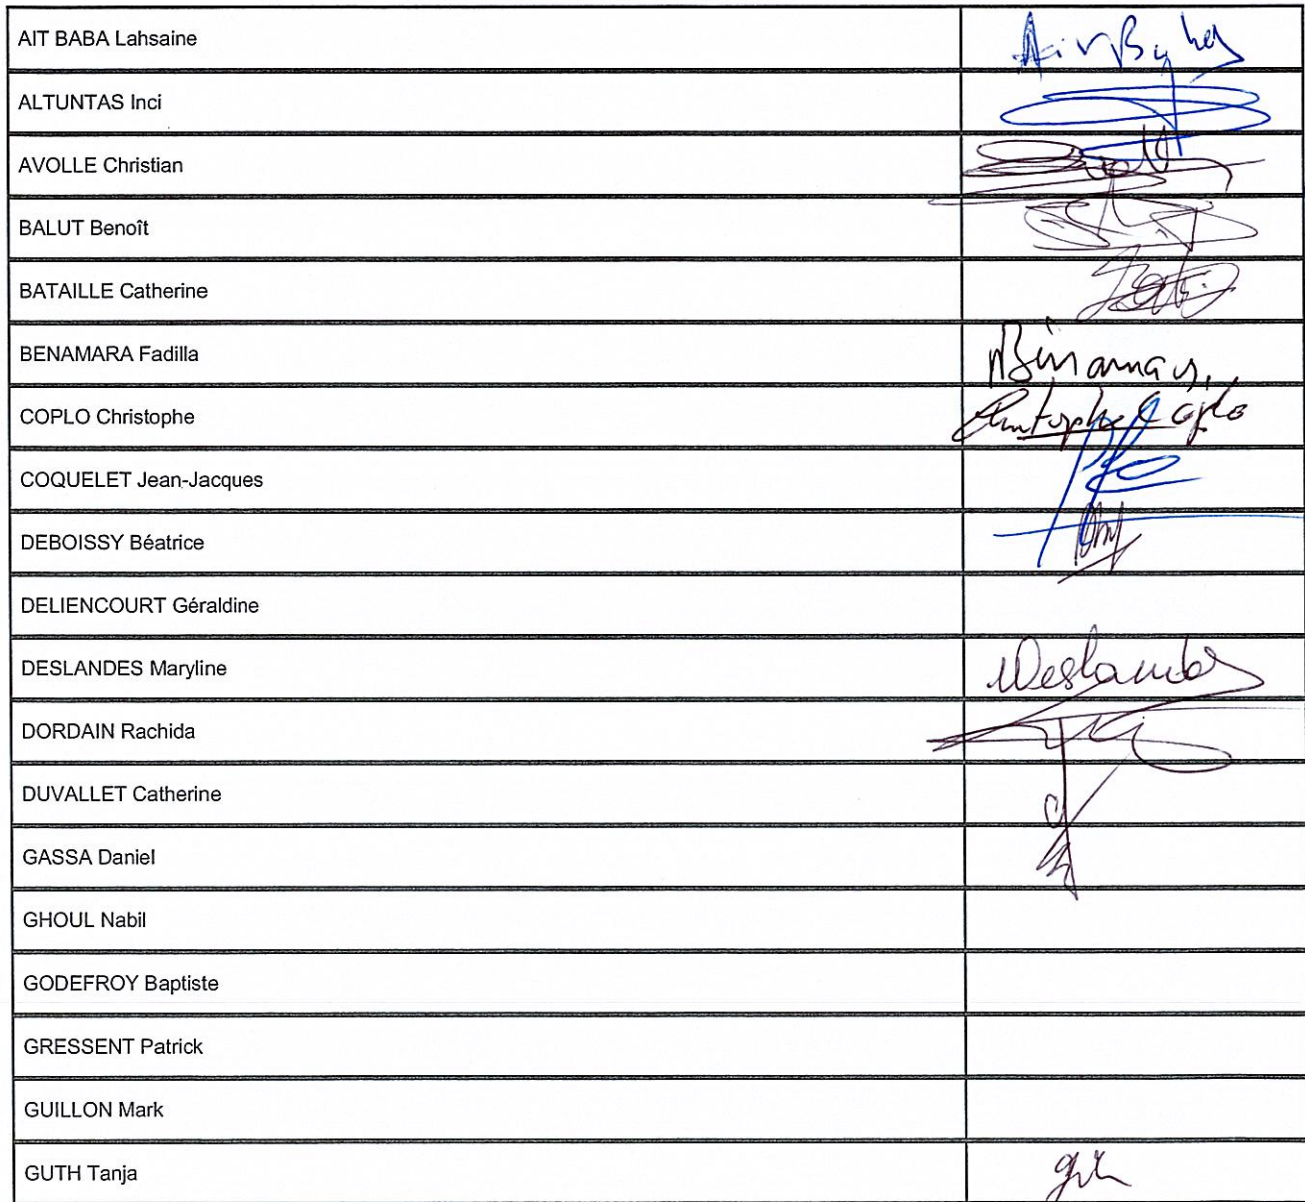 AIT BABA Lahsaine
ALTUNTAS Inci
AVOLLE Christian
BALUT Benoît
BATAILLE Catherine
BENAMARA Fadilla
COPLO Christophe Christophe Coplo
COQUELET Jean-Jacques
DEBOISSY Béatrice
DELIENCOURT Géraldine
DESLANDES Maryline
DORDAIN Rachida
DUVALLET Catherine
GASSA Daniel
GHOUL Nabil
GODEFROY Baptiste
GRESSENT Patrick
GUILLON Mark
GUTH Tanja